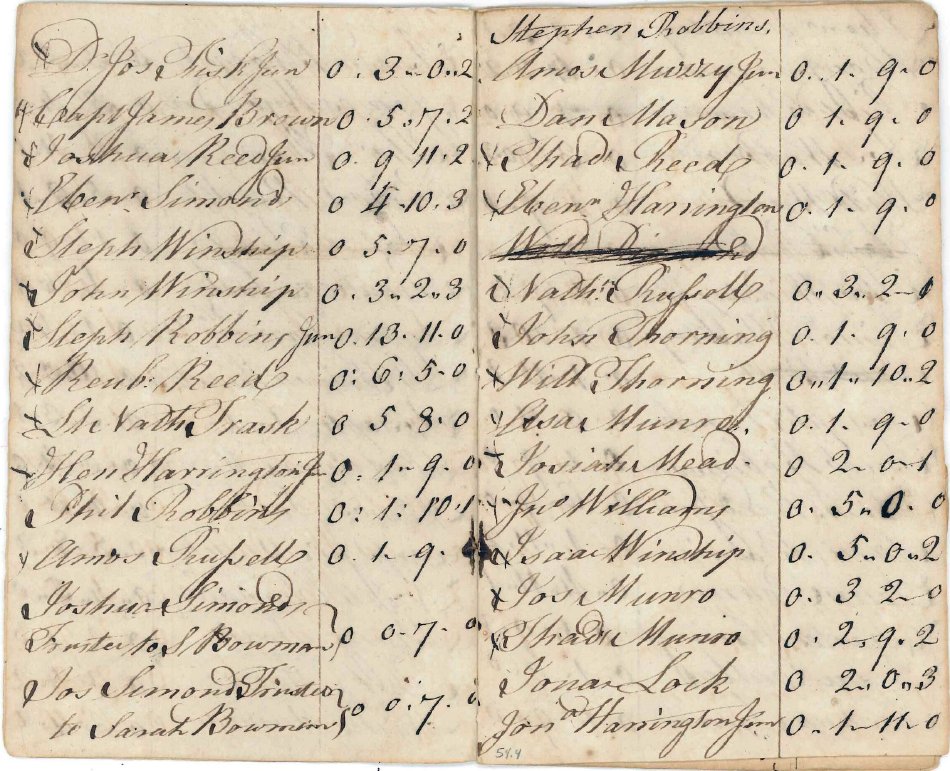 Dr Jos Fisk Jun 0. 3 0. 2
Capt James Brown 0. 5. 7. 2
Joshua Reed Jun 0. 9 11. 2
Ebenr Simond 0 4. 10. 3
Steph Winship 0 5. 7. 0
John Winship 0. 3. 2. 3
Steph Robbins Jun 0. 13. 11. 0
Reubn Reed 0: 6: 5. 0
Lt Nath Trask 0. 5 8. 0
Hen Harrington Jn 0: 1 9. 0
Phil Robbins 0: 1: 10. 1
Amos Russell 0. 1. 9.
Joshua Simonds
Trustee to S Bowman 0 0. 7. 0
Jos Simond Trustee
to Sarah Bowman 0 0. 7. 0
Stephen Robbins.
Amos Muzzy Jun 0. 1. 9. 0
Dan Mason 0 1. 9. 0
Thad Reed 0. 1. 9. 0
Ebenr Harrington 0. 1. 9. 0
Nathl Russell 0. 3. 2
John Thorning 0. 1. 9. 0
Will Thorning 0. 1. 10. 2
Asa Munro. 0. 1. 9. 0
Josiah Mead. 0 2. 0. 1
Jno Williams 0. 5. 0. 0
Isaac Winship 0. 5. 0. 2
Jos Munro 0. 3 2. 0
Thads Munro 0. 2. 9. 2
Jonas Lock 0 2. 0. 3
Jona Harrington Jun 0. 1. 11. 0
54.4